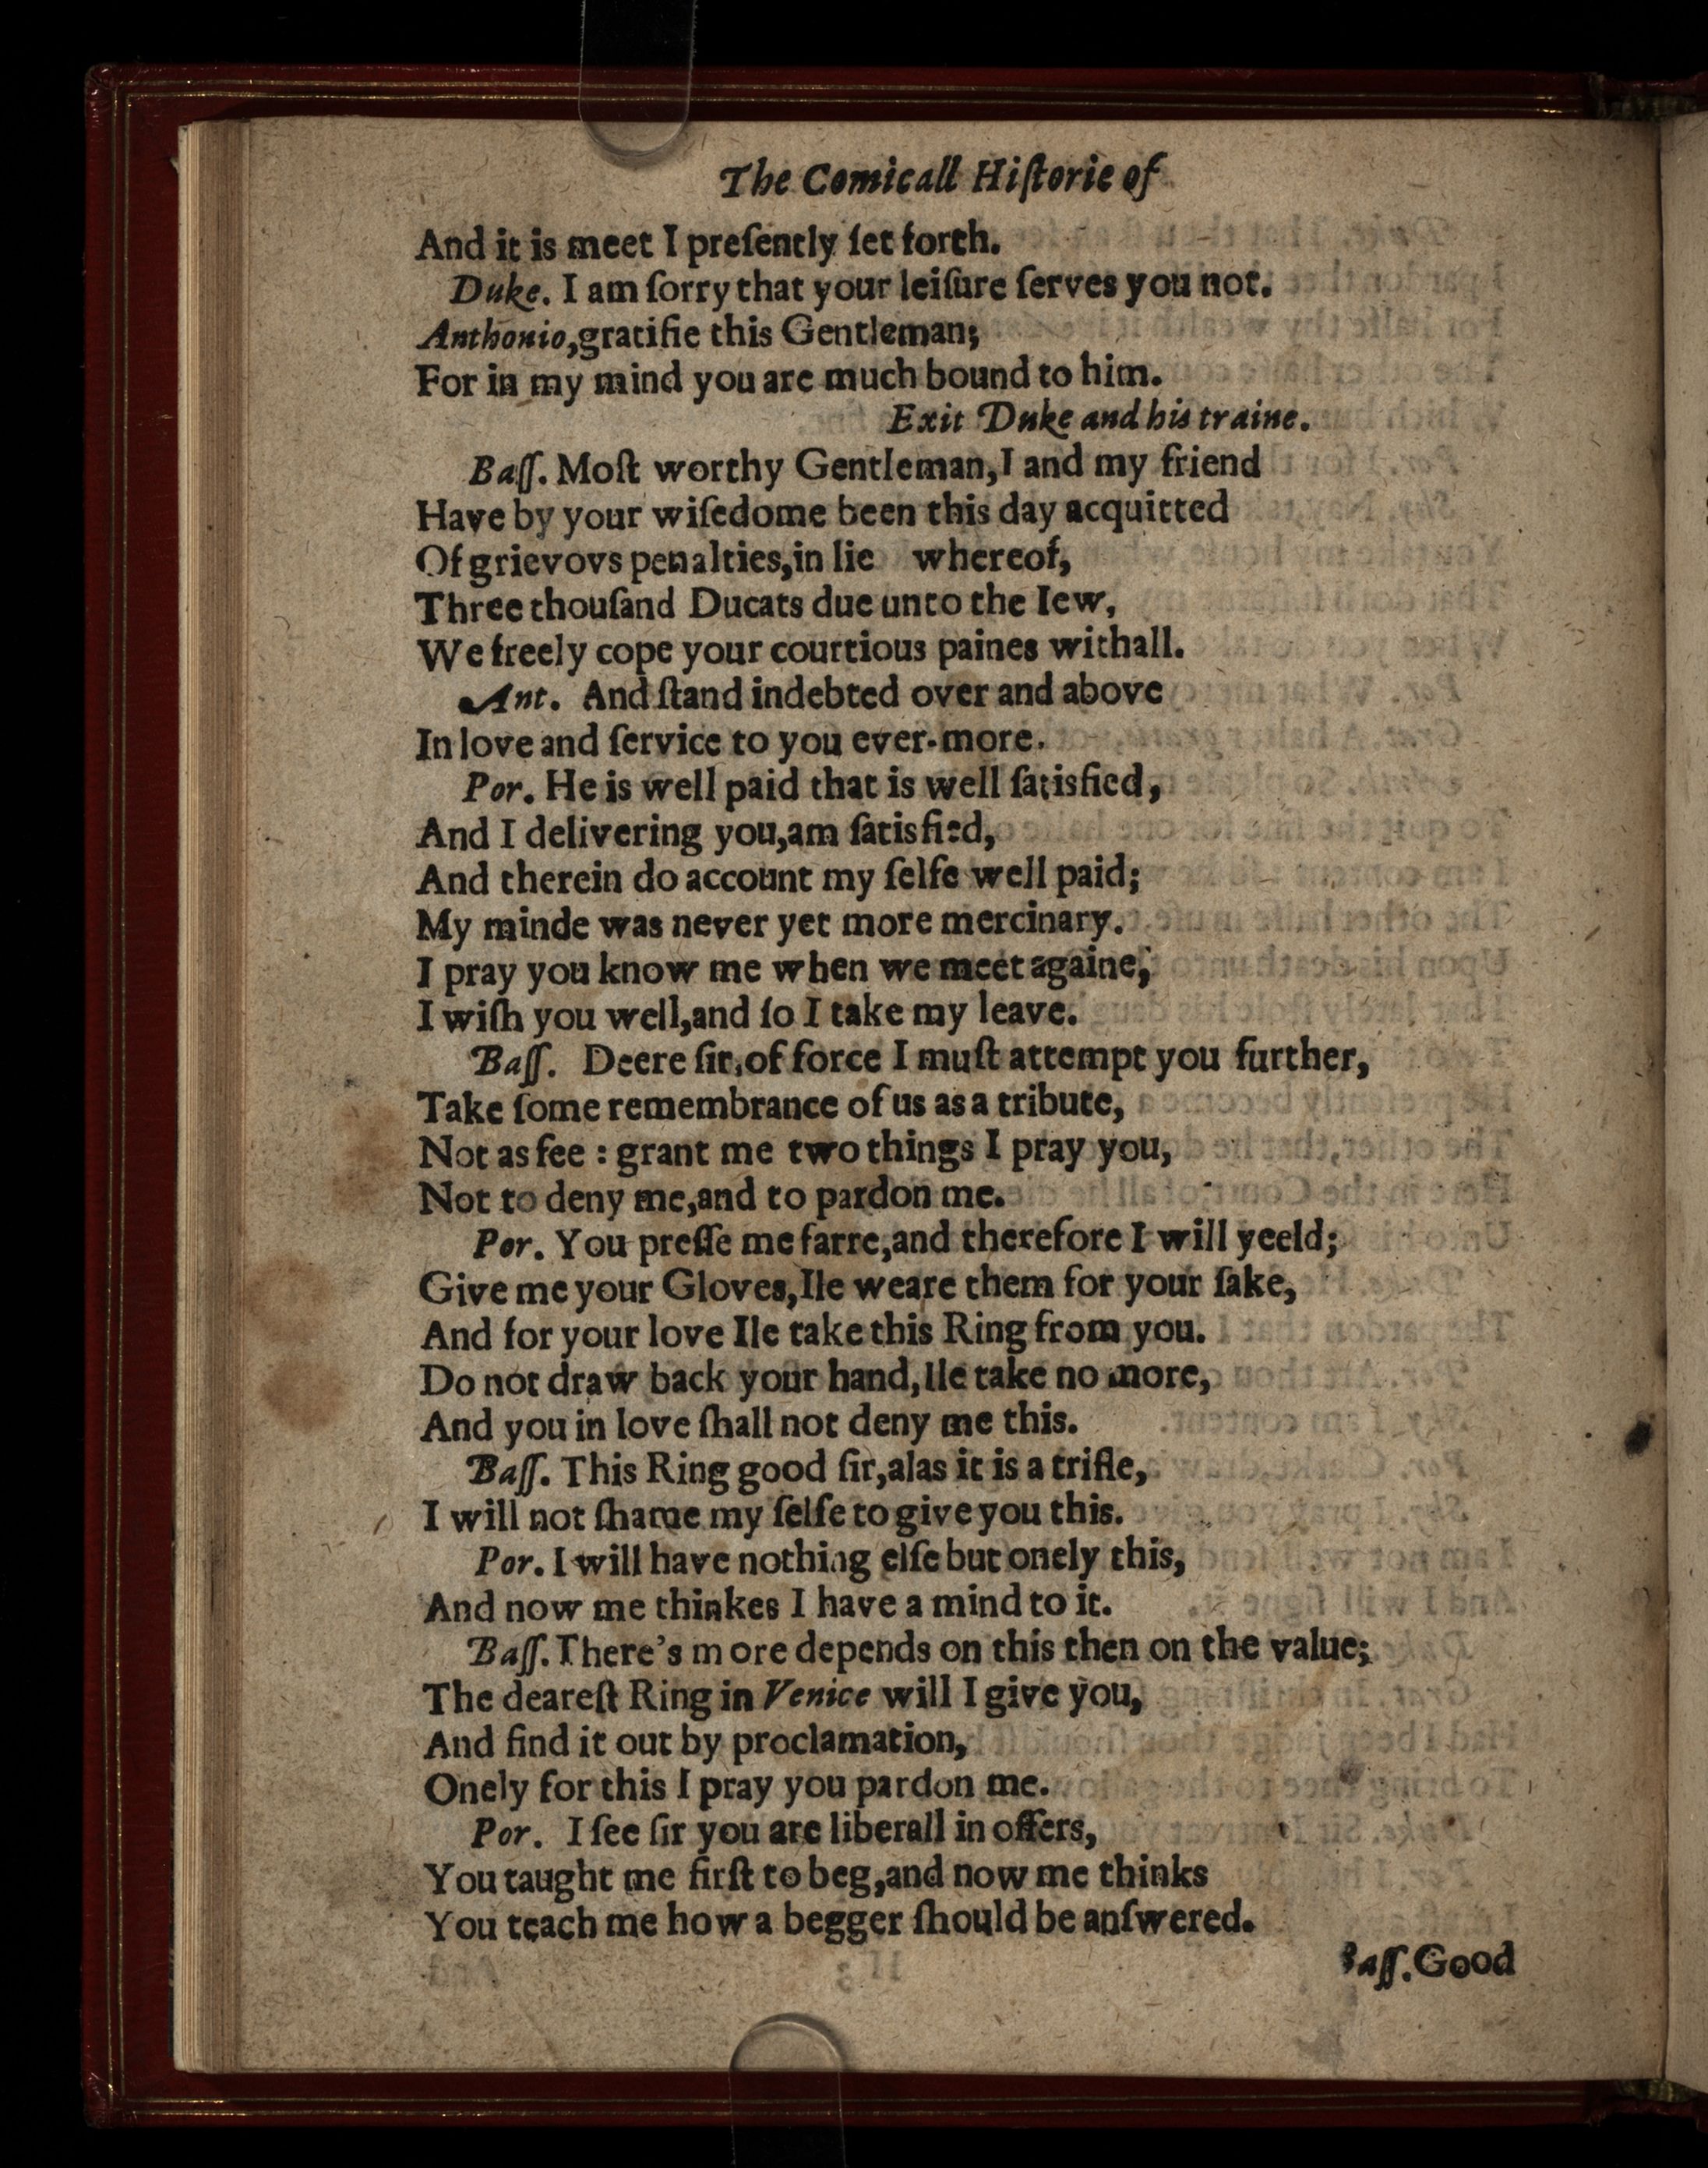 The Comicall Hiſtorie of
And it is meet I preſently ſet forth.
Duke. I am ſorry that your leiſure ſerves you not.
Anthonio,gratifie this Gentleman;
For in my mind you are much bound to him.
Exit Duke and his traine.
Baſſ. Moſt worthy Gentleman,I and my friend
Have by your wiſedome been this day acquitted
Of grievovs penalties,in lie whereof,
Three thouſand Ducats due unto the Iew,
We freely cope your courtious paines withall.
Ant. And ſtand indebted over and above
In love and ſervice to you ever-more.
Por. He is well paid that is well ſatisfied,
And I delivering you,am ſatisfied,
And therein do account my ſelfe well paid;
My minde was never yet more mercinary.
I pray you know me when we meet againe,
I wiſh you well,and ſo I take my leave.
Baſſ. Deere ſir,of force I muſt attempt you further,
Take ſome remembrance of us as a tribute,
Not as fee : grant me two things I pray you,
Not to deny me,and to pardon me.
Por. You preſſe me farre,and therefore I will yeeld;
Give me your Gloves,Ile weare them for your ſake,
And for your love Ile take this Ring from you.
Do not draw back your hand,Ile take no more,
And you in love ſhall not deny me this.
Baſſ. This Ring good ſir,alas it is a trifle,
I will not ſhame my ſelfe to give you this.
Por. I will have nothing elſe but onely this,
And now me thinkes I have a mind to it.
Baſſ. There's more depends on this then on the value;
The deareſt Ring in Venice will I give you,
And find it out by proclamation,
Onely for this I pray you pardon me.
Por. I ſee ſir you are liberall in offers,
You taught me firſt to beg,and now me thinks
You teach me how a begger ſhould be anſwered.
Baſſ.Good